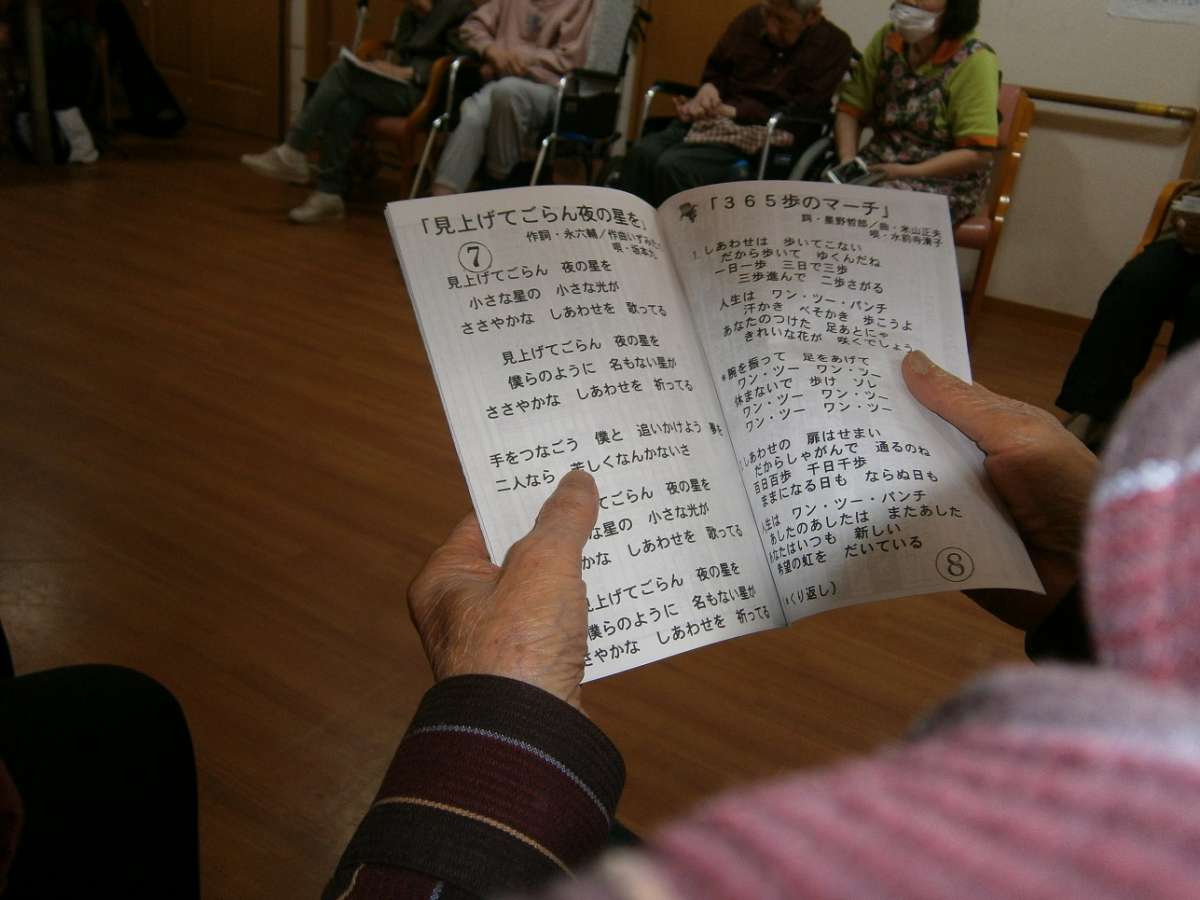 「見上げてごらん夜の星を」
⑦
作詞・永六輔/作曲いずみた
唄・坂本九
見上げてごらん 夜の星を
小さな星の 小さな光が
ささやかな しあわせを 歌ってる
見上げてごらん 夜の星を
僕らのように 名もない星が
ささやかな しあわせを 祈ってる
手をつなごう 僕と 追いかけよう 夢を
二人なら 苦しくなんかないさ
てごらん 夜の星を
星の 小さな光が
かな しあわせを 歌ってる
見上げてごらん 夜の星を
僕らのように 名もない星が
さやかな しあわせを 祈ってる
「365歩のマーチ」
詞・星野哲郎/曲・米山正夫
唄・水前寺清子
1.しあわせは 歩いてこない
だから歩いて ゆくんだね
一日一歩 三日で三歩
三歩進んで 二歩さがる
人生は ワン・ツー・パンチ
汗かき べそかき 歩こうよ
あなたのつけた 足あとにゃ
きれいな花が 咲くでしょう
*腕を振って 足をあげて
ワン・ツー ワン・ツー
休まないで 歩け ソレ
ワン・ツー ワン・ツー
ワン・ツー ワン・ツー
しあわせの 扉はせまい
だからしゃがんで 通るのね
百日百歩 千日千歩
ままになる日も ならぬ日も
人生は ワン・ツー・パンチ
あしたのあしたは またあした
あなたはいつも 新しい
希望の虹を だいている
⑧
くり返し)